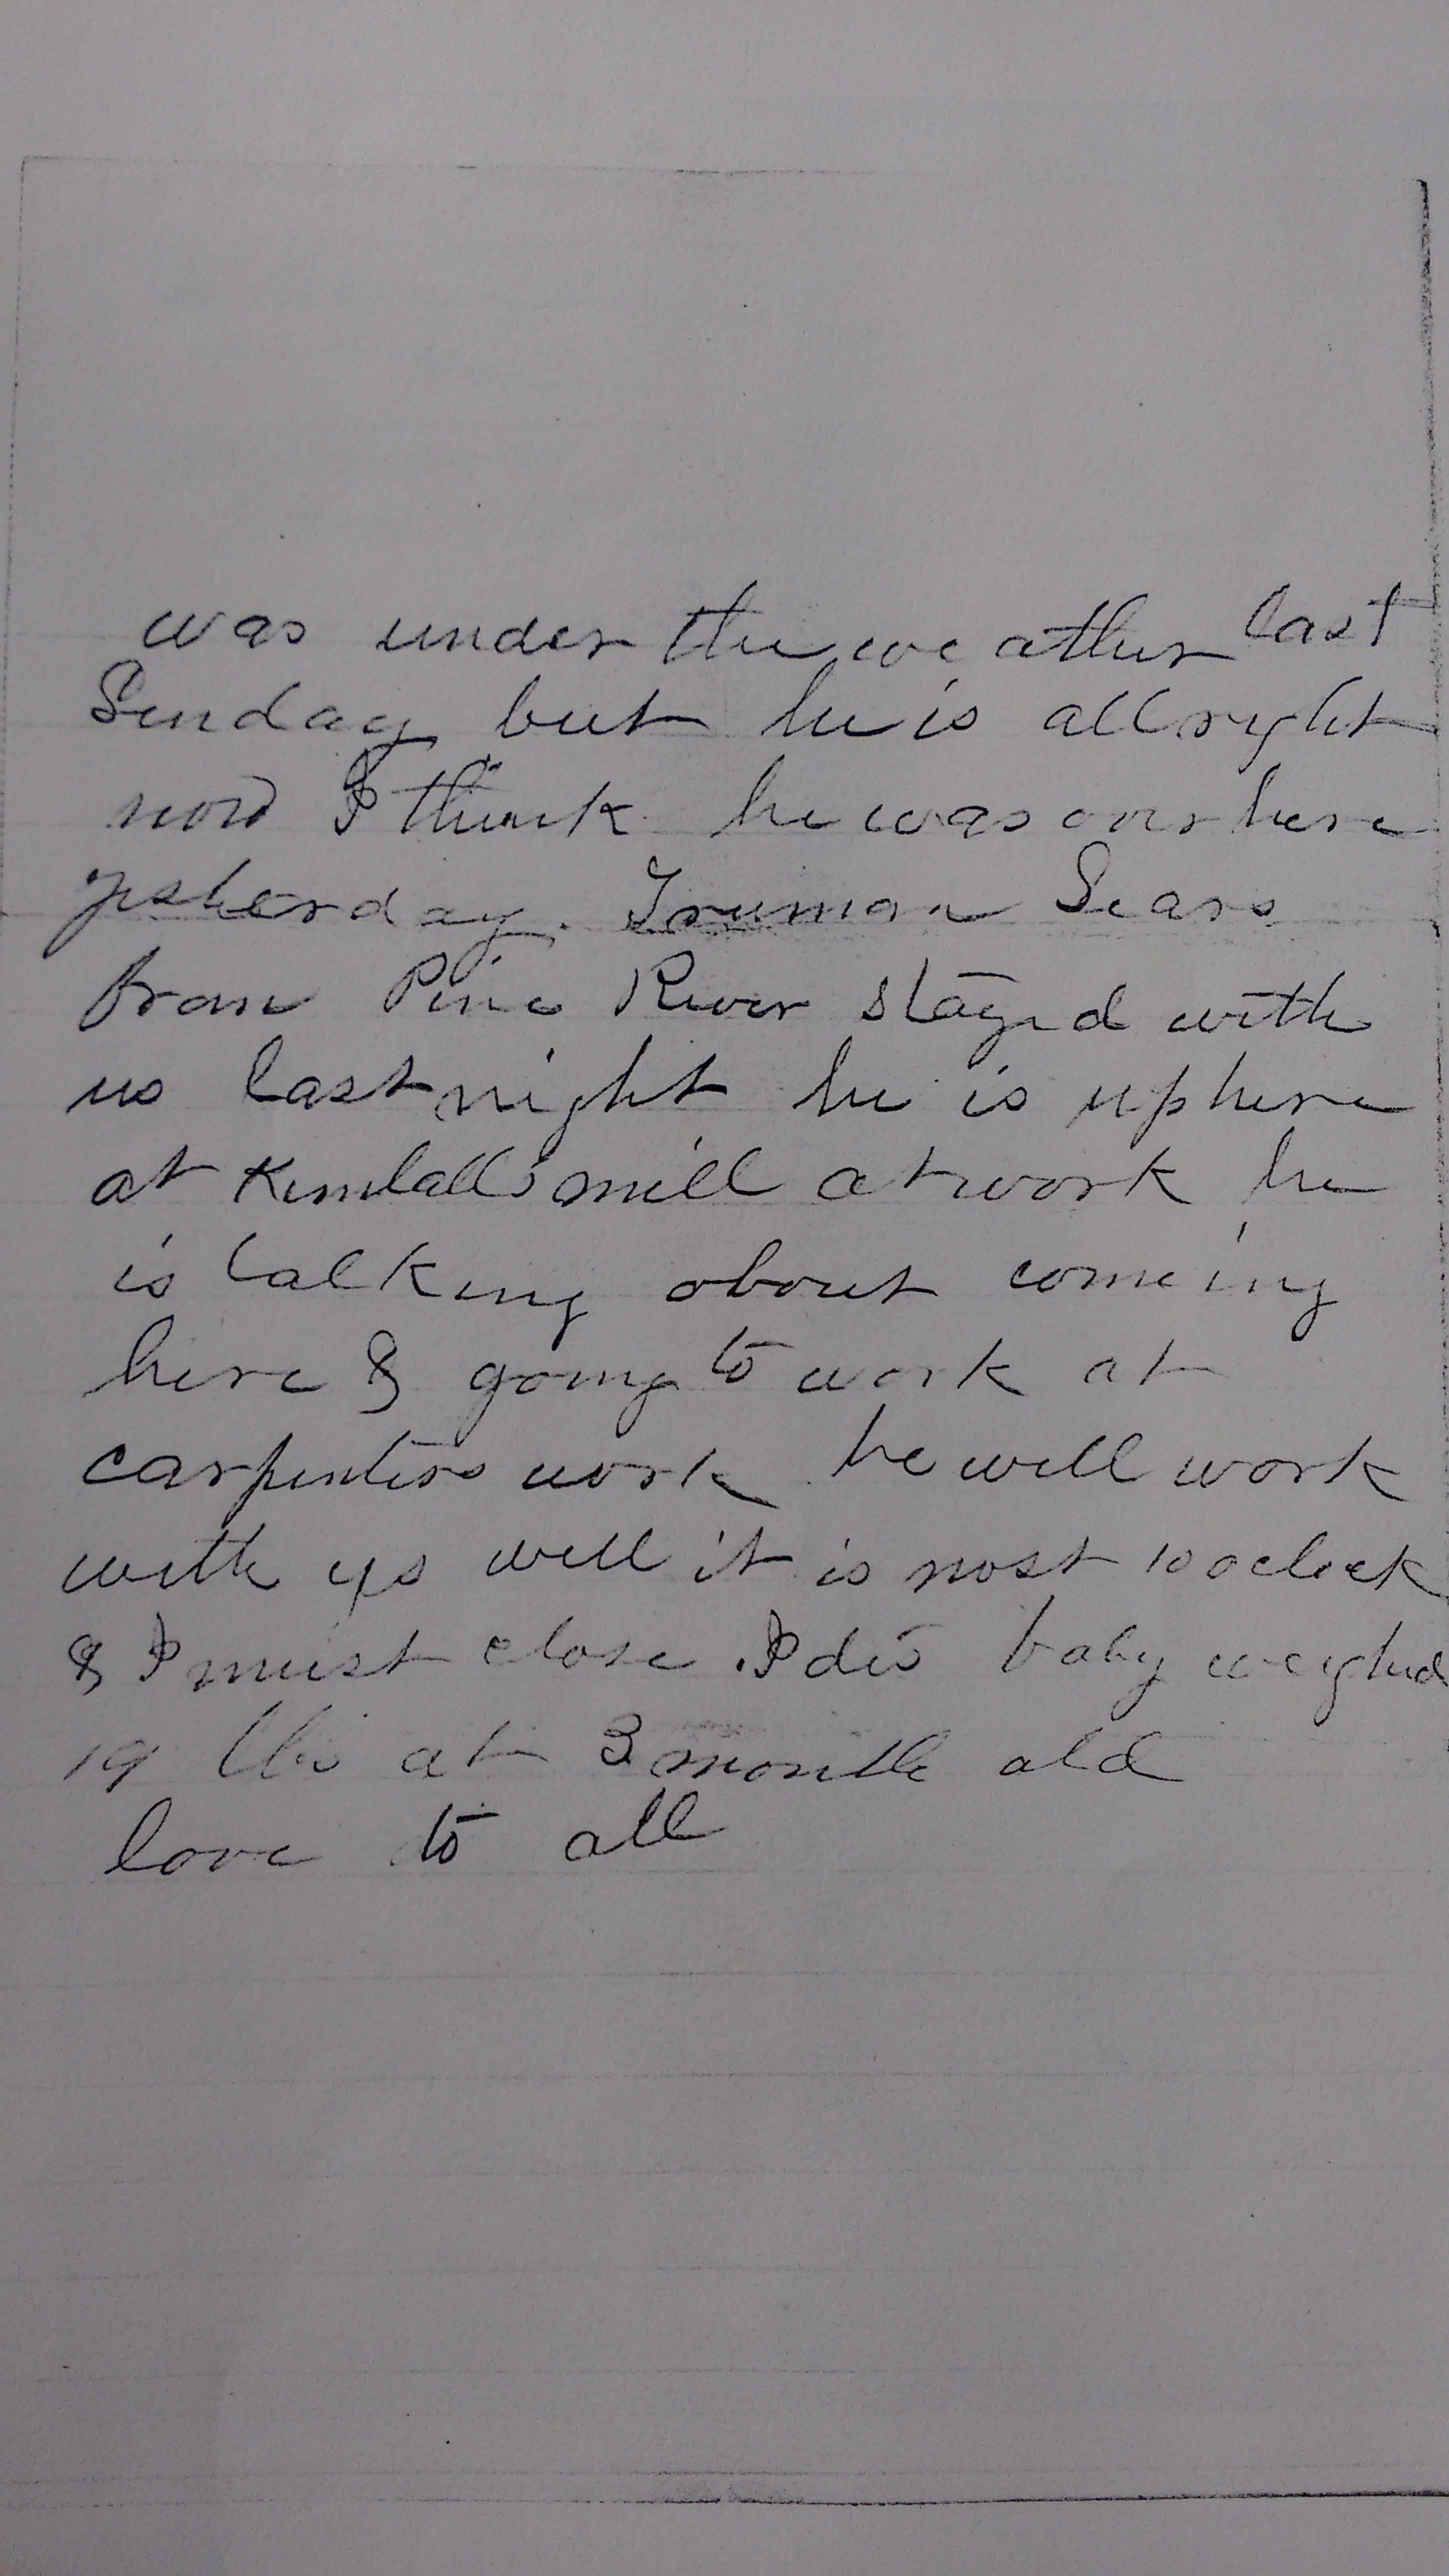 was under the weather last
Sunday but he is all right
now I think he was over here
yesterday. Truman Sears
from Pine River stayed with
us last night he is up here
at Kimball's mill at work he
is talking about comeing
here & going to work at
carpenters work he will work
with us well it is most 10 oclock
& I must close. Idas baby weighed
19 lbs at 3 month old
love to all